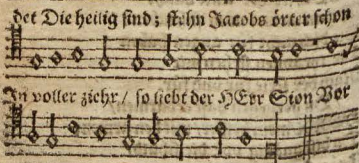 det Die heilig sind; stehn Jacobs örter schon
In voller ziehr / so liebt der HErr Sion Vor